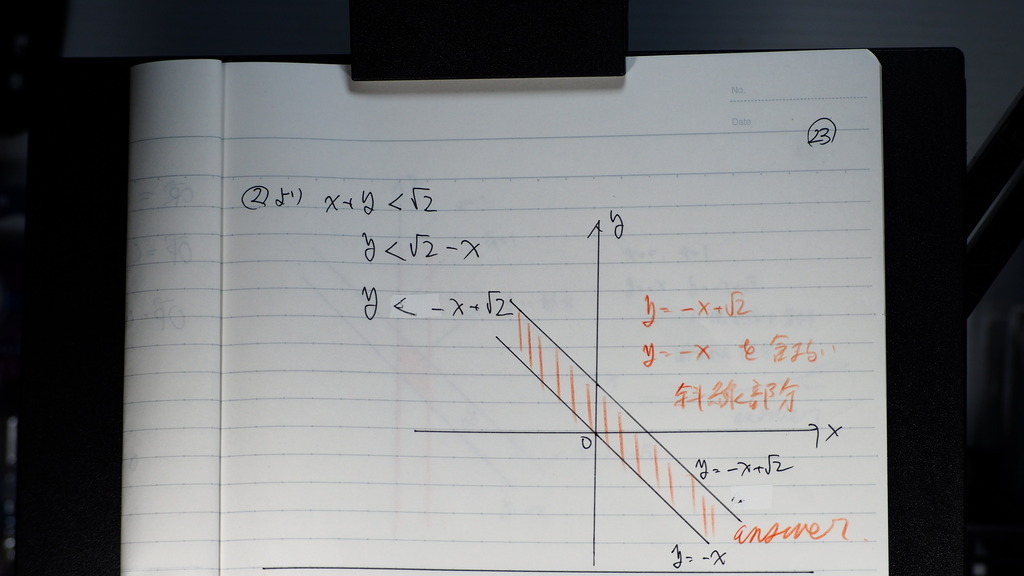 No.
Date
㉓
②より x+y<√2
y<√2-x
y<-x+√2
y
y=-x+√2
y=-x を含まない
斜線部分
0
x
y=-x+√2
answer.
y=-x